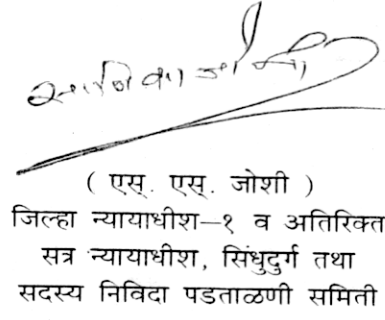 सानिका जोशी
( एस्. एस्. जोशी )
जिल्हा न्यायाधीश–१ व अतिरिक्त
सत्र न्यायाधीश, सिंधुदुर्ग तथा
सदस्य निविदा पडताळणी समिती